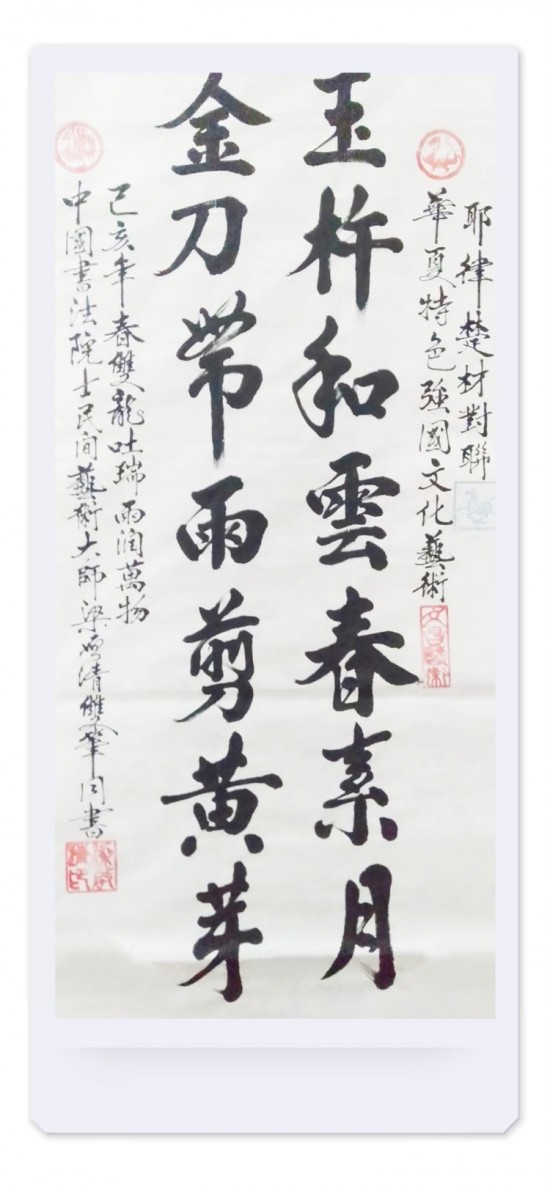 耶律楚材對聯
華夏特色強國文化藝術
玉杵和雲春素月
金刀帶雨剪黃芽
己亥年春雙龍吐瑞雨潤萬物
中國書法院士民间藝術大師梁 清雙筆同書